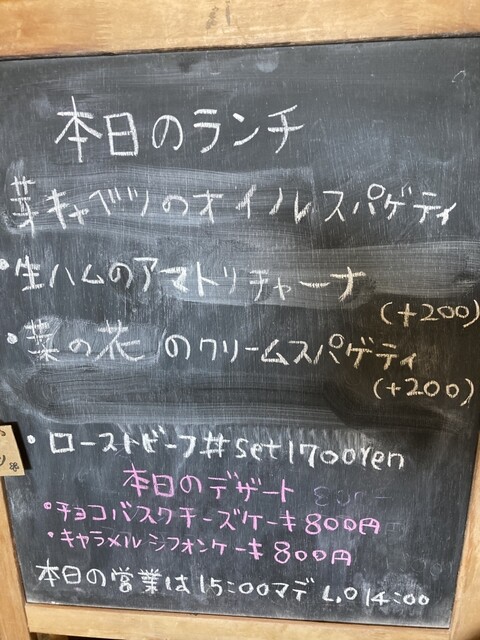 本日のランチ
芽キャベツのオイルスパゲティ
・生ハムのアマトリチャーナ
(+200)
・菜の花のクリームスパゲティ
(+200)
・ローストビーフ丼set1700yen
本日のデザート
・チョコバスクチーズケーキ800円
・キャラメルシフォンケーキ800円
本日の営業は15:00マデ L.O14:00